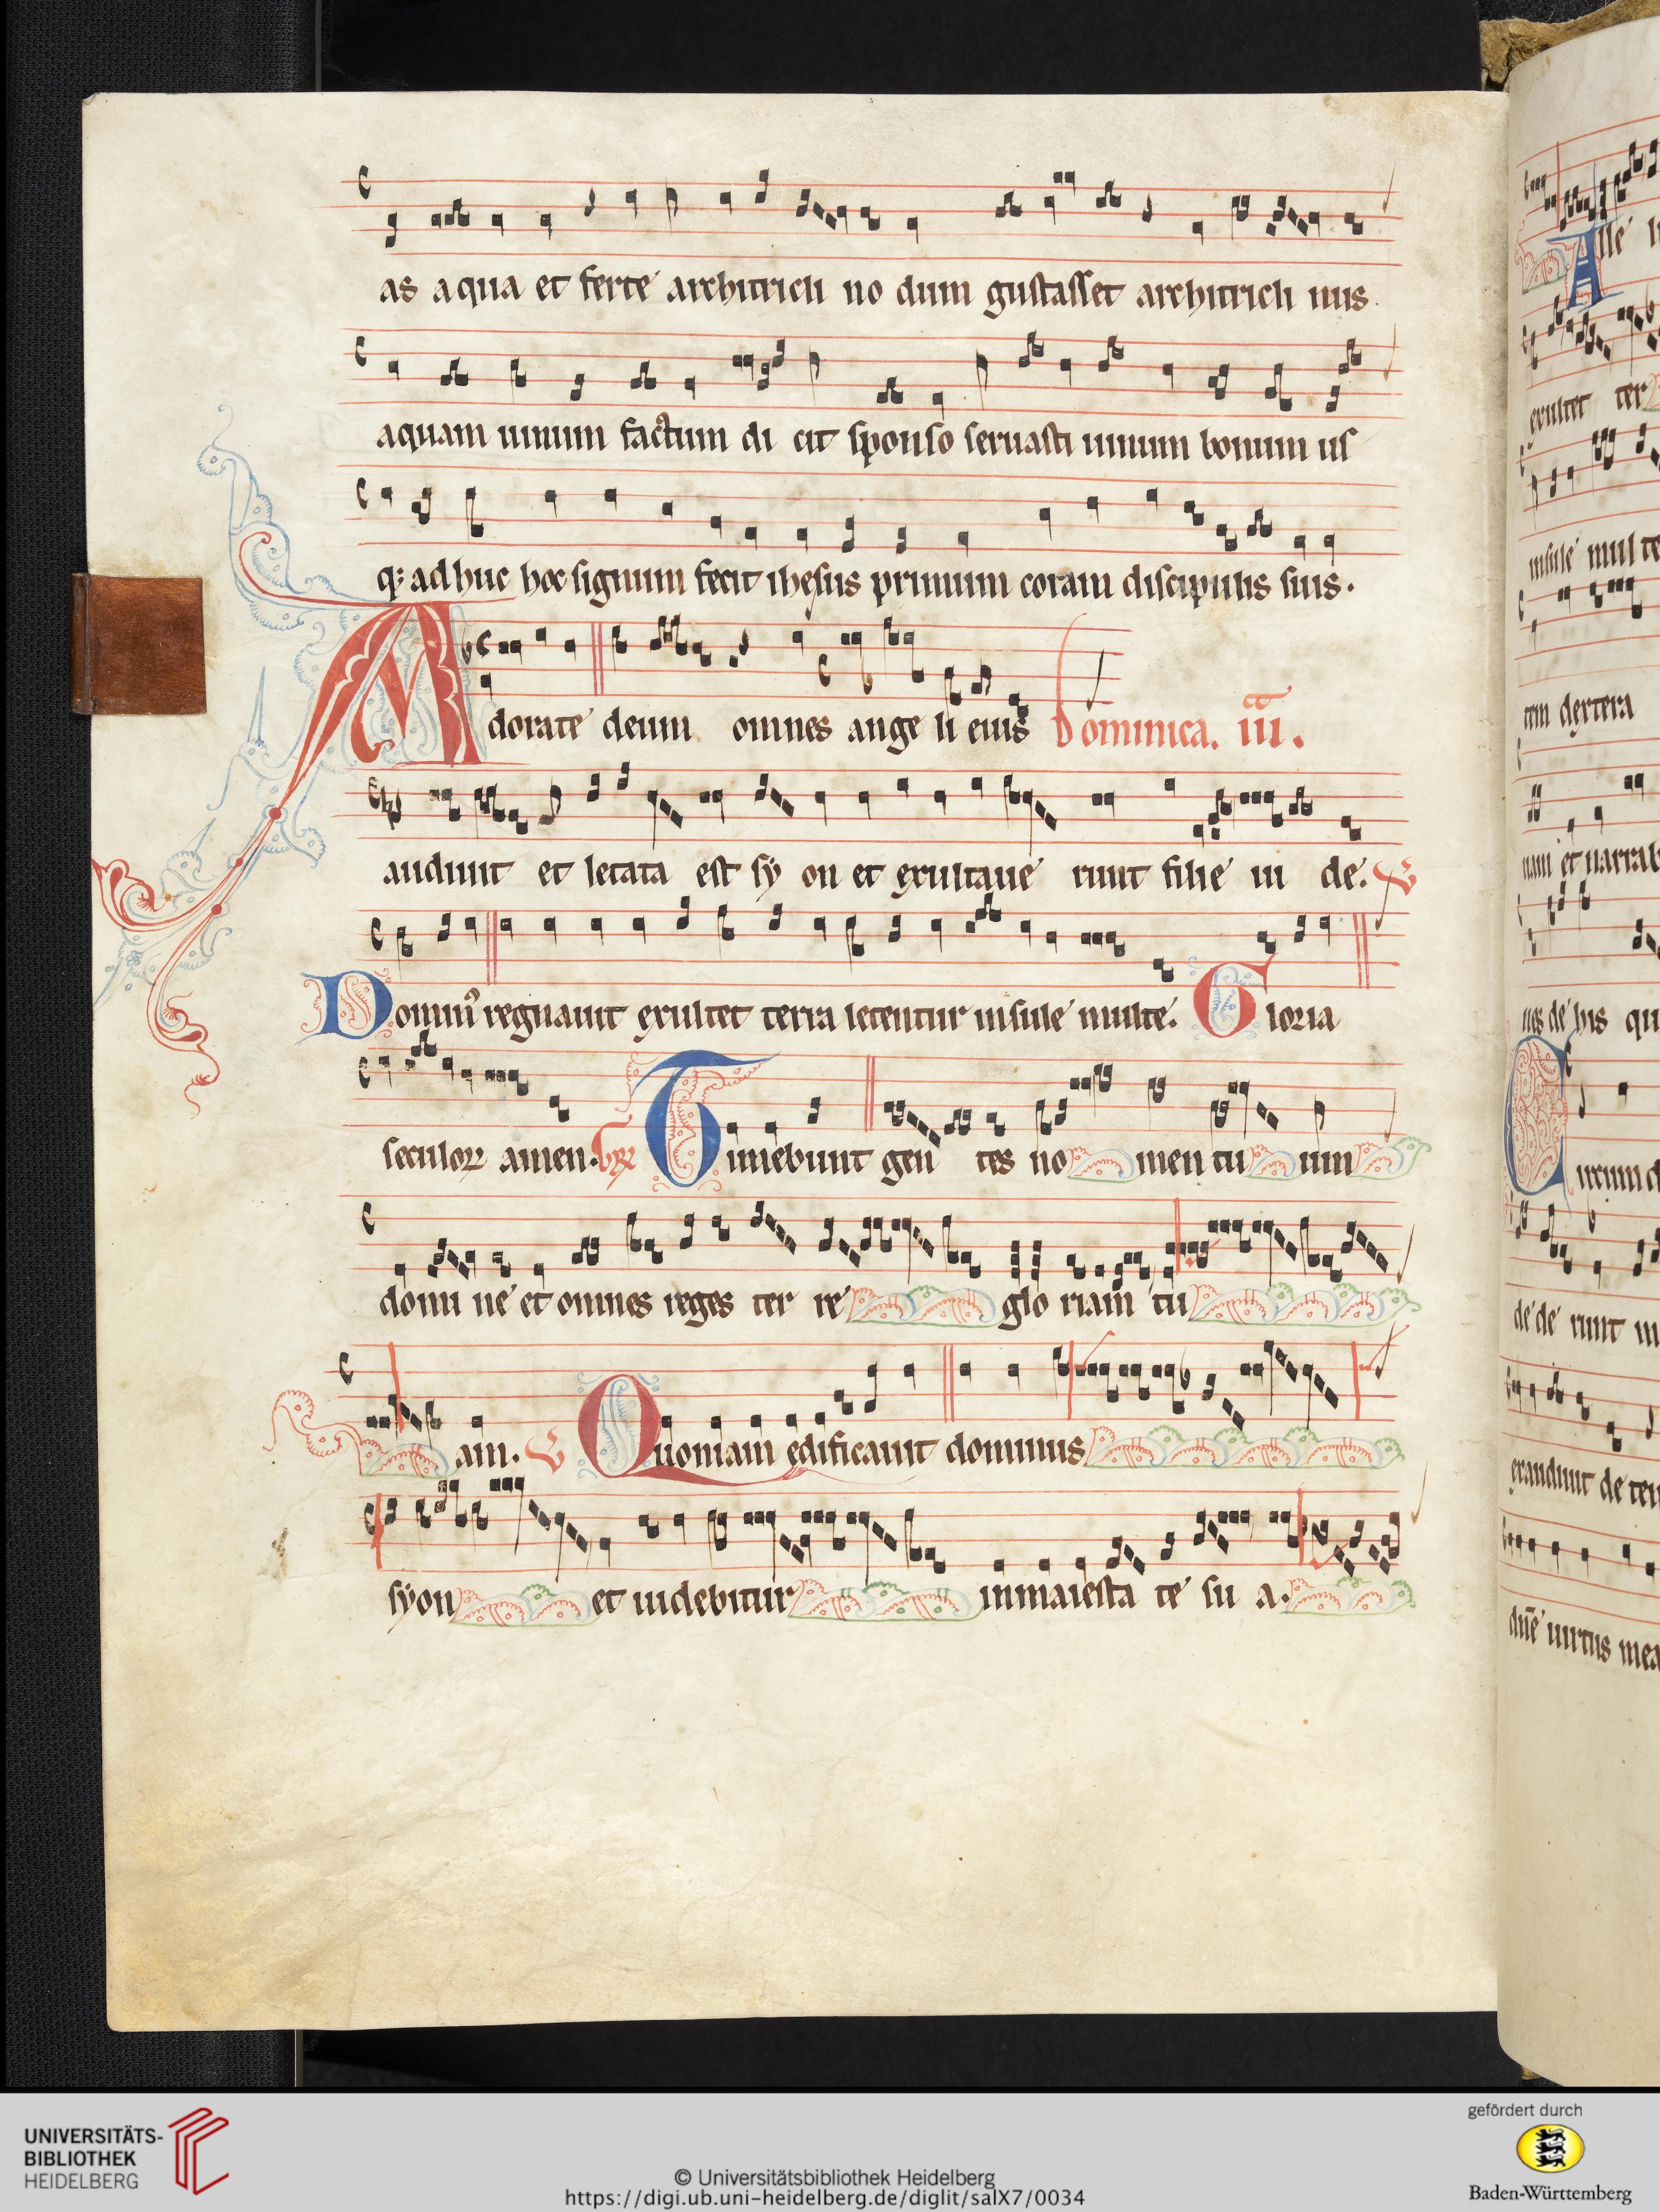 as aqua et ferte architricli no dum gustasset architricli nus
aquam uinum factum di cit sponso seruasti uinum bonum us
q; adhuc hoc signum fecit ihesus primum coram discipulis suis.
Adorate deum omnes ange li eius Dominica. iii.
audiuit et letata est sy on et exultaue runt filie iu de. V
Domin9 regnauit exultet terra letentur insule multe. Gloria
seculoꝝ amen. Timebunt gen tes no men tu um
domi ne et omnes reges ter re glo riam tu
am. V Quoniam edificauit dominus
syon et uidebitur in maiesta te su a.
Alle
exultet ter
insule mul te
tem dextera
nam et narrab
nes de his qu
de de runt in
exaudiuit de tem
dne uirtus mea
UNIVERSITÄTS-
BIBLIOTHEK
HEIDELBERG
© Universitätsbibliothek Heidelberg
https://digi.ub.uni-heidelberg.de/diglit/salX7/0034
gefördert durch
Baden-Württemberg